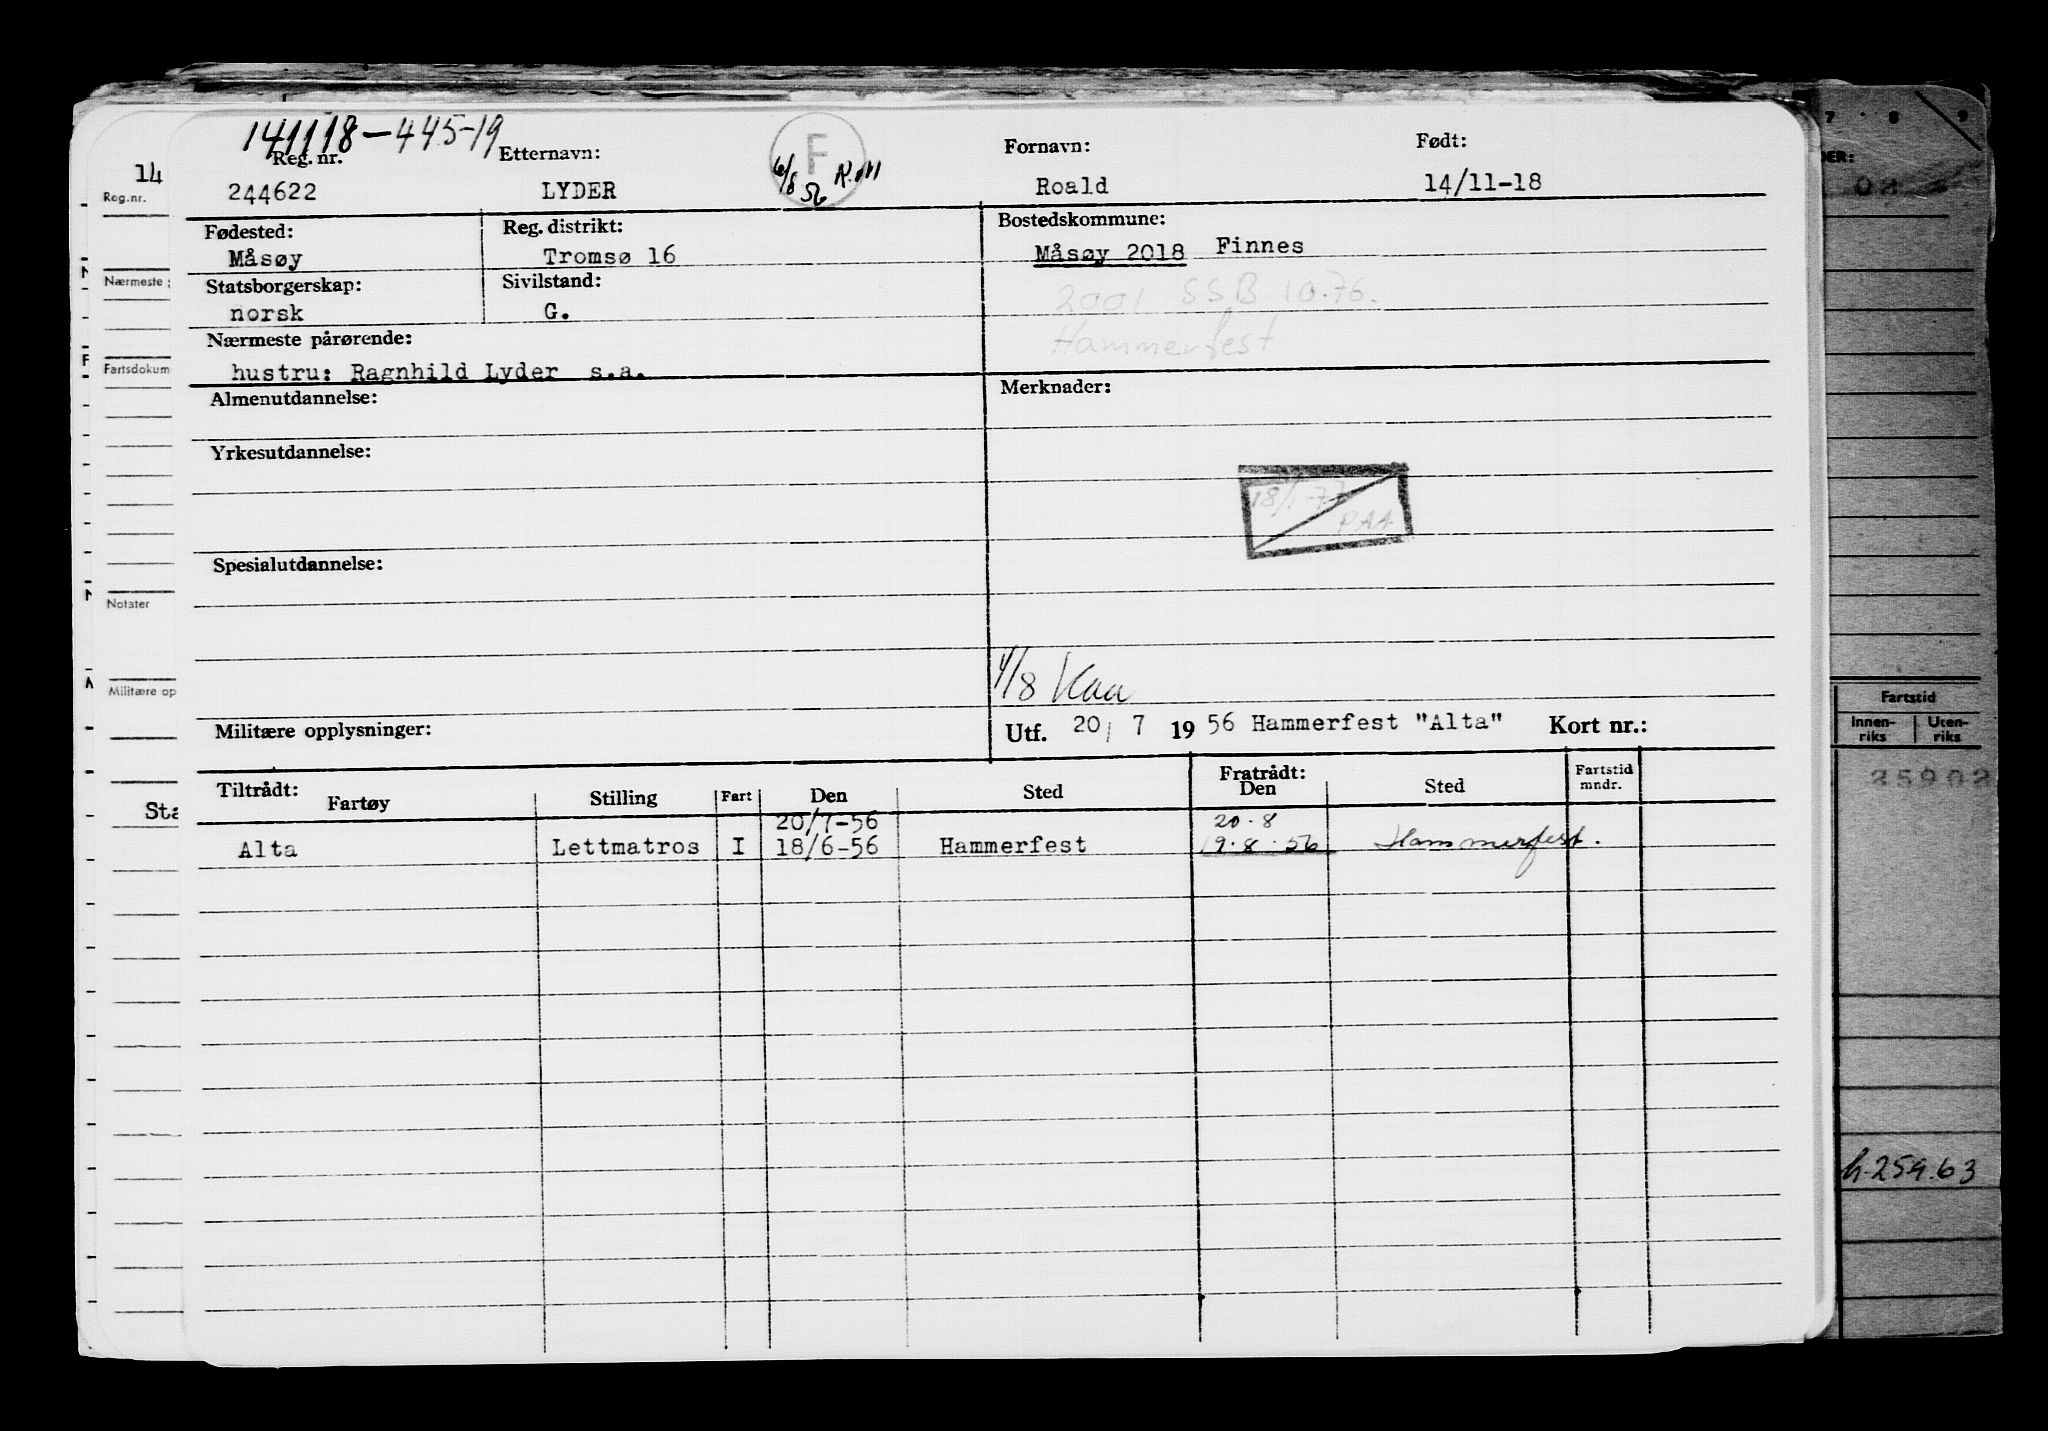 141118-445-19
Reg. nr. Etternavn: F Fornavn: Født:
244622 LYDER 6/8 56 Roald 14/11-18
Fødested: Reg. distrikt: Bostedskommune:
Måsøy Tromsø 16 Måsøy 2018 Finnes
Statsborgerskap: Sivilstand: 2001 SSB 10.76.
norsk G. Hammerfest
Nærmeste pårørende:
hustru: Ragnhild Lyder s.a.
Almenutdannelse: Merknader:
Yrkesutdannelse:
18/1-77
PAA
Spesialutdannelse:
Militære opplysninger: Utf. 20/ 7 19 56 Hammerfest "Alta" Kort nr.:
Tiltrådt: Fratrådt:
Fartøy Stilling Fart Den Sted Den Sted Fartstid mndr.
20/7-56 20.8
Alta Lettmatros I 18/6-56 Hammerfest 19.8.56 Hammerfest.
14
Reg.nr.
Nærmeste
Fartsdokum
Notater
Militære op
Sta
7 8 9
Fartstid
Innen-riks Uten-riks
35903
h.259.63